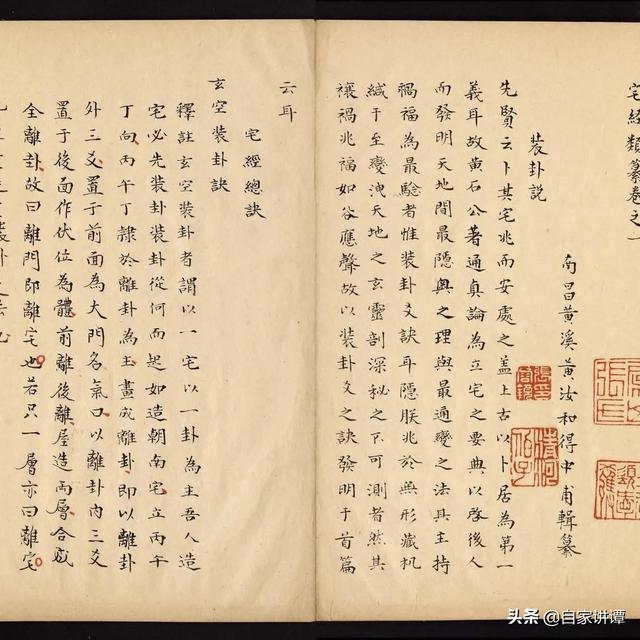 宅經類纂卷之一
南昌黃溪黃汝和得中甫輯纂
裝卦說
先賢云卜其宅兆而安處之蓋上古以卜居為第一
義耳故黃石公著通真論為立宅之要典以啓後人
而發明天地間最隱與之理與最通變之法具主持
禍福為最驗者惟裝卦爻訣耳隱朕兆於無形藏机
緘于至變洩天地之玄靈剖深秘之下可測者然其
禳禍兆福如谷應聲故以裝卦爻之訣發明于首篇
云耳
宅經總訣
玄空裝卦訣
釋註玄空裝卦者謂以一宅以一卦為主吾人造
宅必先裝卦裝卦從何而起如造朝南宅立丙午
丁向丙午丁隸於離卦為主畫成離卦即以離卦
外三爻置于前面為大門名氣口以離卦內三爻
置于後面作伏位為體前離後離屋造両層合成
全離卦故曰離門即離宅也若只一層亦曰離宅
頭条 @自家讲谭